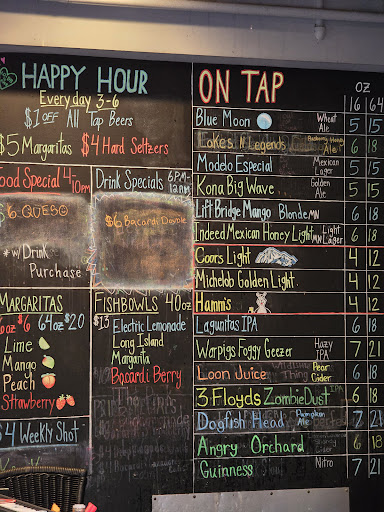 HAPPY HOUR
Everyday 3-6
$1 OFF All Tap Beers
$5 Margaritas $4 Hard Seltzers
ood Special 4-10pm
$6 QUESO
*w/ Drink
Purchase
Drink Specials 6PM-12am
$6 Bacardi Double
MARGARITAS
oz $6 64oz $20
Lime
Mango
Peach
Strawberry
$4 Weekly Shot
FISHBOWLS 40oz
$13 Electric Lemonade
Long Island
Margarita
Bacardi Berry
ON TAP OZ
16 64
Blue Moon Wheat Ale 5 15
Lakes N Legends Ale 6 18
Modelo Especial Mexican Lager 5 15
Kona Big Wave Golden Ale 5 15
Lift Bridge Mango Blonde MN 6 18
Indeed Mexican Honey Light MN Light Lager 6 18
Coors Light 4 12
Michelob Golden Light 4 12
Hamm's 4 12
Lagunitas IPA 6 18
Warpigs Foggy Geezer Hazy IPA 7 21
Loon Juice Pear Cider 6 18
3 Floyds Zombie Dust 6 18
Dogfish Head Pumpkin Ale 7 21
Angry Orchard 6 18
Guinness Nitro 7 21